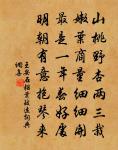 山桃野杏兩三栽
嫩葉商量細細開
最是一年春好處
明朝有意抱琴來
王安石招葉致遠詞典
網